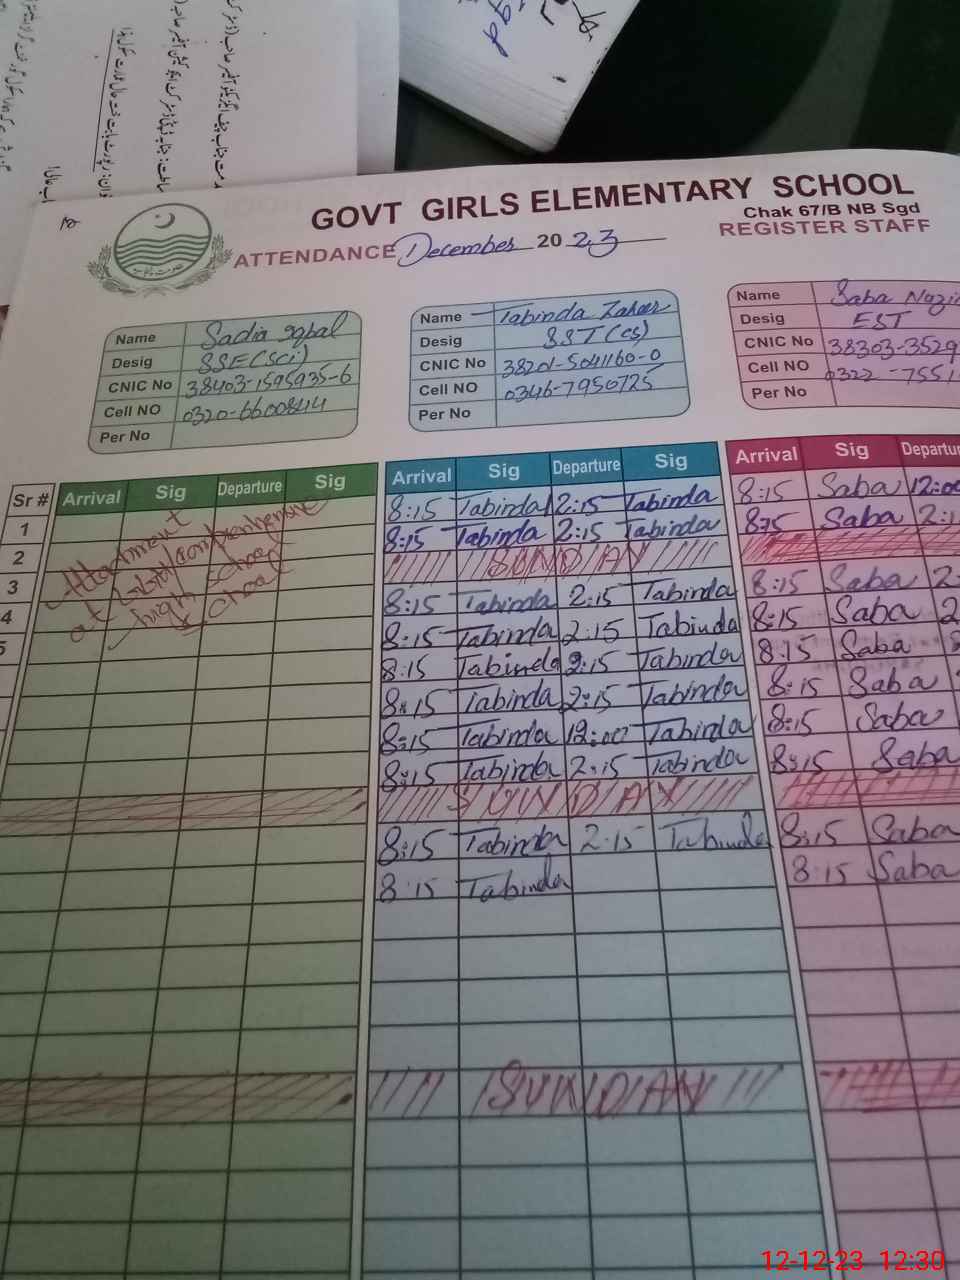 GOVT GIRLS ELEMENTARY SCHOOL
Chak 67/B NB Sgd
ATTENDANCE December 2023 REGISTER STAFF
Name Sadia iqbal
Desig SSE(Sci)
CNIC No 38403-1595935-6
Cell NO 0320-6600844
Per No
Name Tabinda Zaheer
Desig SST (cs)
CNIC No 38201-5041160-0
Cell NO 0346-7950725
Per No
Name Saba Nazir
Desig EST
CNIC No 38303-3529
Cell NO 0322-755
Per No
Sr # Arrival Sig Departure Sig
1
2
3
4
5
Attachment
at comprehensive
high school
Arrival Sig Departure Sig
8:15 Tabinda 12:15 Tabinda
8:15 Tabinda 2:15 Tabinda
SUNDAY
8:15 Tabinda 2:15 Tabinda
8:15 Tabinda 2:15 Tabinda
8:15 Tabinda 2:15 Tabinda
8:15 Tabinda 2:15 Tabinda
8:15 Tabinda 12:00 Tabinda
8:15 Tabinda 2:15 Tabinda
SUNDAY
8:15 Tabinda 2:15 Tabinda
8:15 Tabinda
SUNDAY
Arrival Sig Departur
8:15 Saba 12:00
8:15 Saba 2:1
8:15 Saba 2:
8:15 Saba 2
8:15 Saba
8:15 Saba
8:15 Saba
8:15 Saba
8:15 Saba
8:15 Saba
12-12-23 12:30